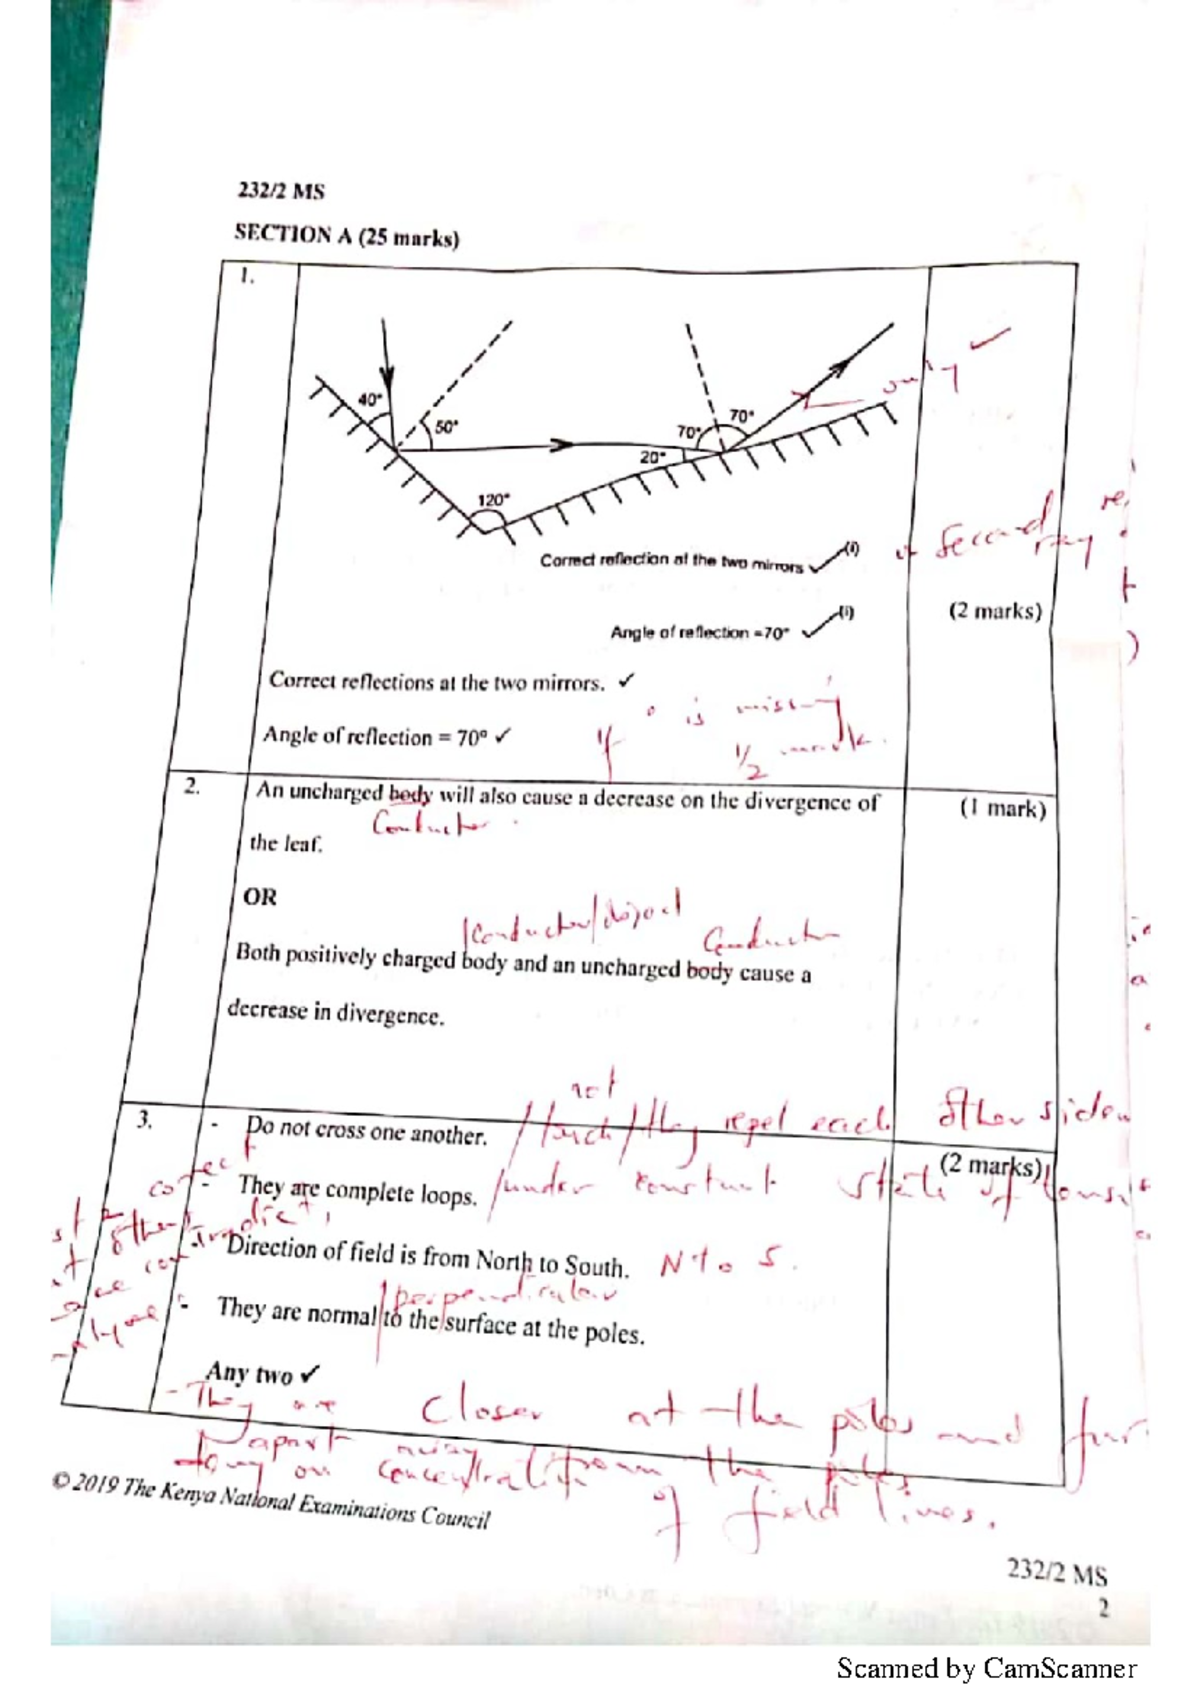 232/2 MS
SECTION A (25 marks)
1.
40°
50°
70°
70°
20°
120°
only ✓
Correct reflection at the two mirrors ✓(i)
Second
ray
Angle of reflection =70° ✓(i)
(2 marks)
Correct reflections at the two mirrors. ✓
Angle of reflection = 70° ✓
If ° is missing
1/2 mark.
2.
An uncharged body will also cause a decrease on the divergence of
(1 mark)
Conductor.
the leaf.
OR
/Conductor/object
Conductor
Both positively charged body and an uncharged body cause a
decrease in divergence.
not
3.
- Do not cross one another. /touch/they repel each other
(2 marks)
- They are complete loops. /under constant state of
- Direction of field is from North to South. N to S.
/perpendicular
- They are normal to the surface at the poles.
Any two ✓
- They are closer at the poles and
apart away from the poles
concentration of field lines.
© 2019 The Kenya National Examinations Council
232/2 MS
2
Scanned by CamScanner